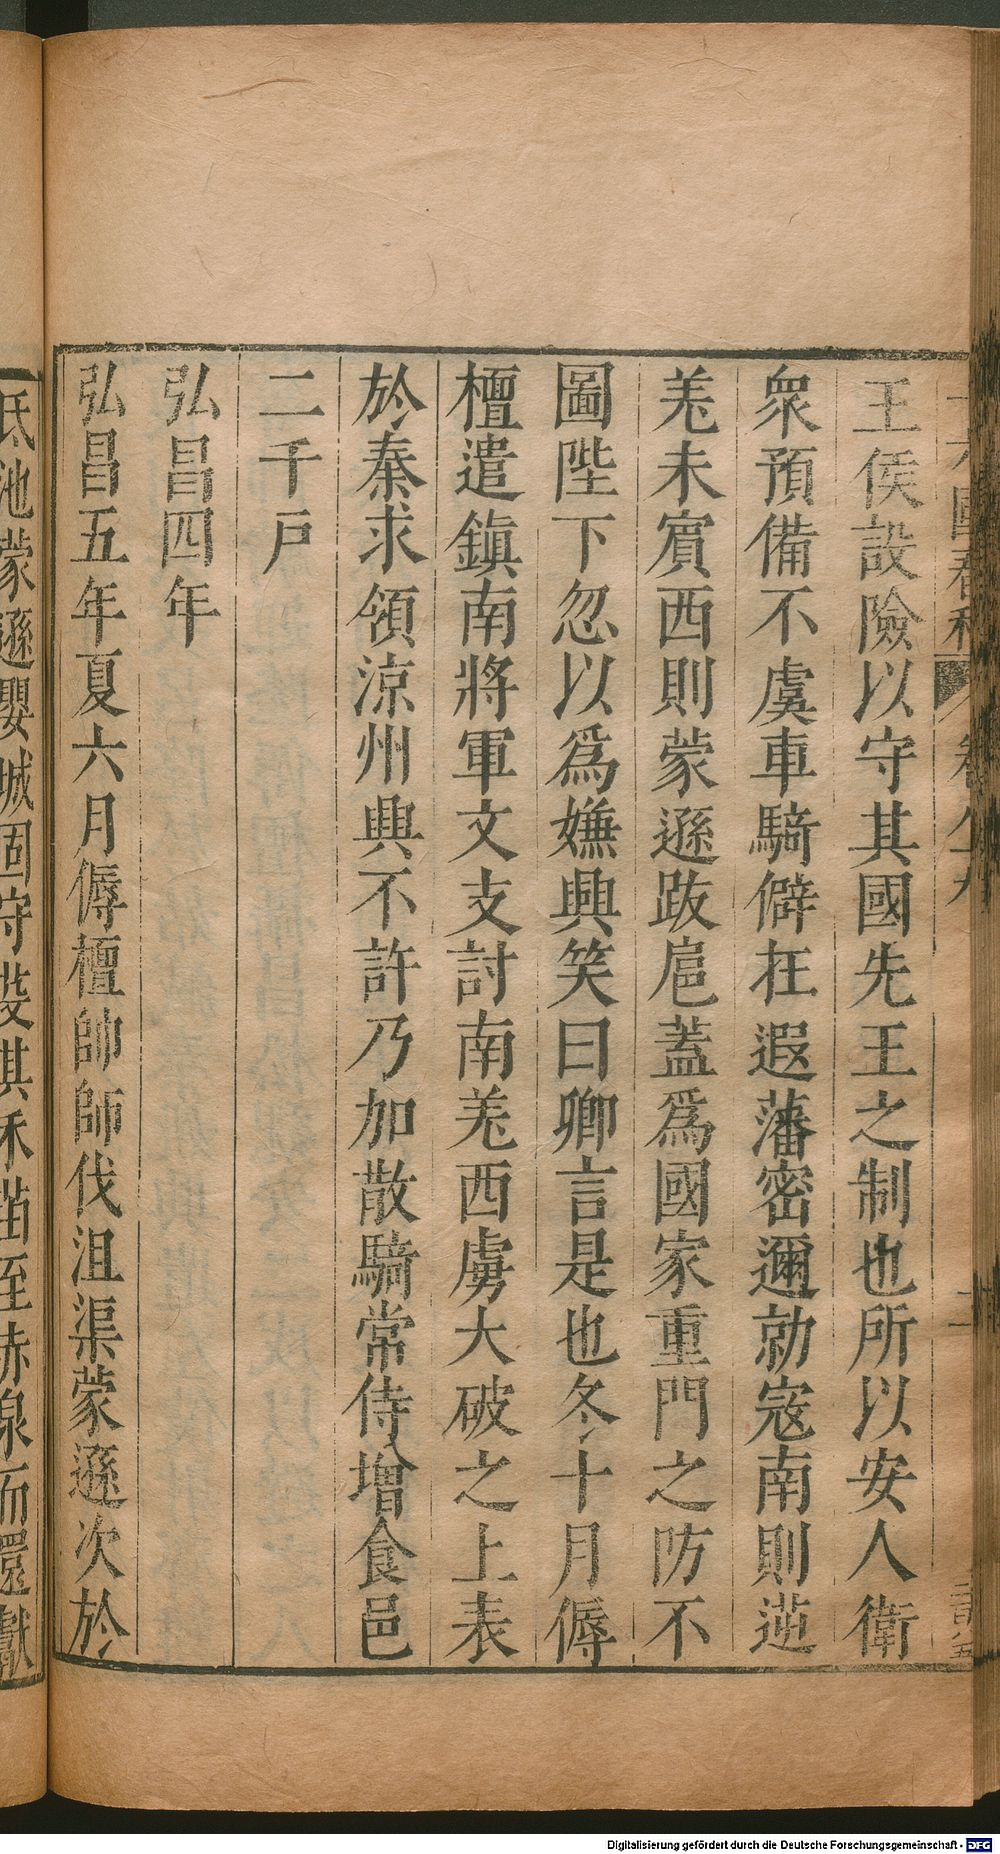 王侯設險以守其國先王之制也所以安人衛
衆預備不虞車騎僻在遐藩密邇勍寇南則逆
羌未賔西則蒙遜跋扈蓋爲國家重門之防不
圖陛下忽以爲嫌興笑曰卿言是也冬十月傉
檀遣鎮南將軍文支討南羌西虜大破之上表
於秦求領涼州興不許乃加散騎常侍增食邑
二千戸
弘昌四年
弘昌五年夏六月傉檀帥師伐沮渠蒙遜次於
氐池蒙遜嬰城固守芟其禾苗至赤泉而還獻
Digitalisierung gefördert durch die Deutsche Forschungsgemeinschaft - DFG